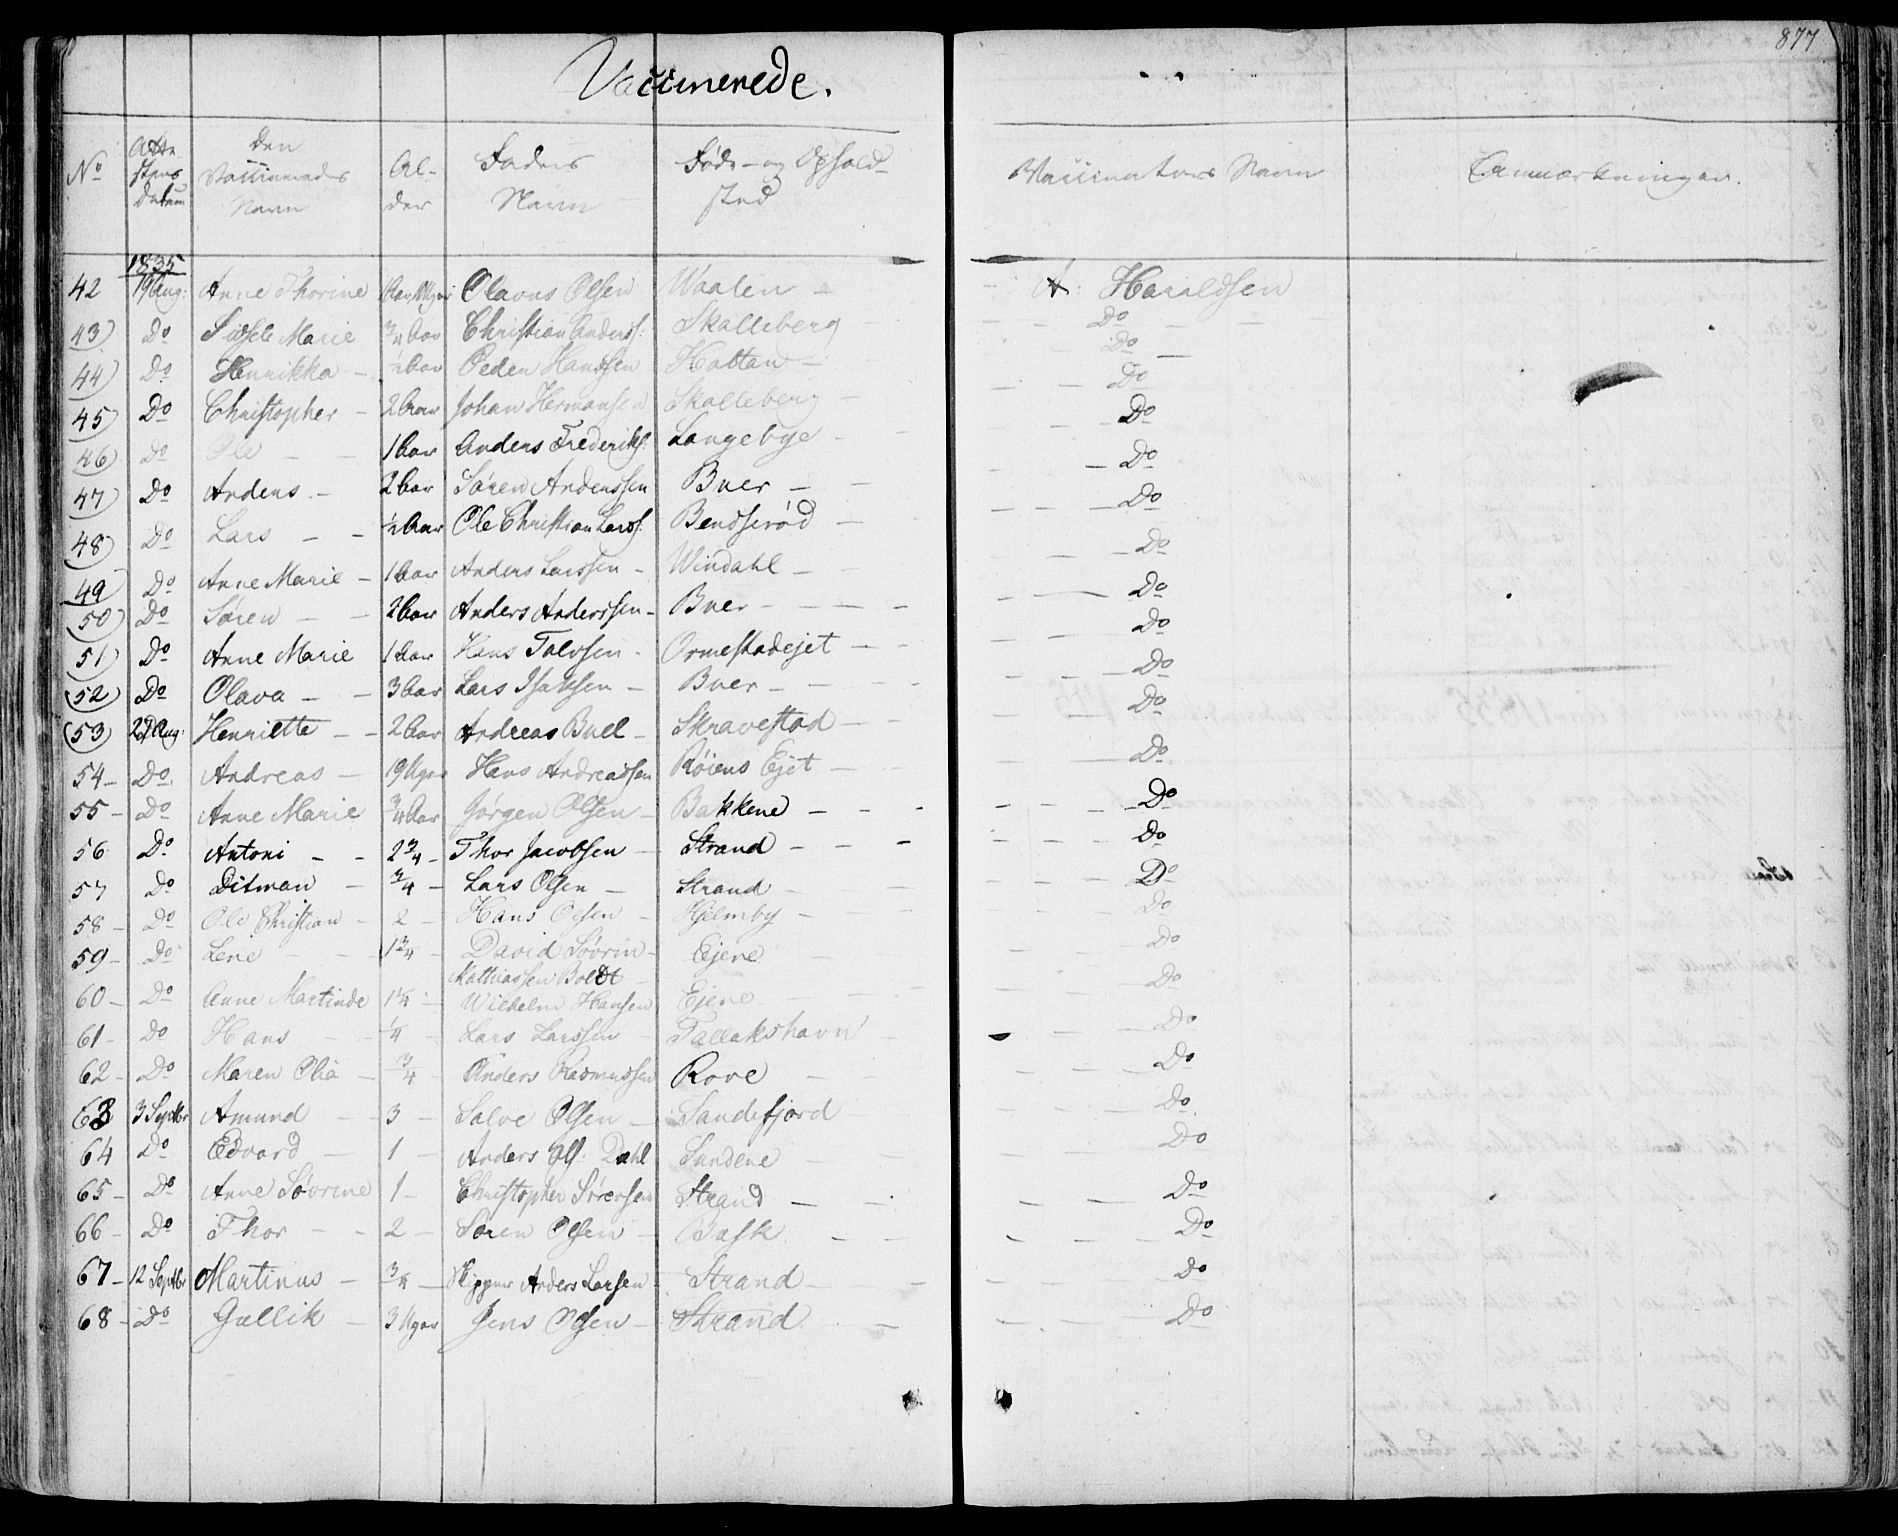 877
Vaccinerede.
No | Attestens Datum | Den Vaccineredes Navn | Alder | Faders Navn | Føde- og Opholdsted | Vaccinators Navn | Anmærkninger.
1835
42 | 19 Aug: | Anne Thorine | Olavus Olsen | Waalen – | A: Haraldsen
43) | Do | Sidsele Marie | 3/4 Aar | Christian Anderss: | Skalleberg | Do
44) | Do | Henrikka – | 1/2 Aar | Peder Hanssen | Hattan – | Do
45) | Do | Christopher – | 2 Aar | Johan Hermansen | Skalleberg – | Do
46) | Do | Ole – – | 1 Aar | Anders Frederiks: | Langebye – | Do
47) | Do | Anders – | 2 Aar | Søren Anderssen | Buer – – | Do
48) | Do | Lars – – | 1/2 Aar | Ole Christian Larss: | Bendserød – | Do
49 | Do | Anne Marie – | 1 Aar | Anders Larssen – | Windahl – | Do
50) | Do | Søren – – | 2 Aar | Anders Anderssen – | Buer – – – – | Do
51) | Do | Anne Marie | 1 Aar | Hans Talvsen – | Ormestadejet – – | Do
(52) | Do | Olava – – | 3 Aar | Lars Isaksen – | Buer – – – – | Do
(53) | 27 Aug: | Henriette – – | 2 Aar | Andreas Buel – | Skravestad – – | Do
54 – | Do | Andreas – | 19 Uger | Hans Andreassen | Røiens Ejet – – | Do
55 – | Do | Anne Marie | 3/4 Aar | Jørgen Olsen – | Bakkene – – – | Do
56 | Do | Antoni – – | 2 3/4 – | Thor Jacobsen – | Strand – – – | Do
57 | Do | Ditman – | 3/4 – | Lars Olsen – | Strand – | Do
58 – | Do | Ole Christian – | 2 – | Hans Olsen – | Hjelmby – | Do
59 – | Do | Lene – – | 1 3/4 – | David Søvrin – Mathiassen Boldt – | Ejene | Do
60 – | Do | Anne Martinde | 1 1/4 – | Wilhelm Hansen | Ejene – | Do
61 – | Do | Hans – – | 1/4 – | Lars Larssen – | Tallakshavn – | Do
62 – | Do | Maren Olia – | 3/4 – | Anders Rasmussen | Rove – | Do
63 | 3 Septbr | Amund – | 3 – | Salve Olsen – | Sandefjord | Do
64 | Do | Edvard – | 1 – | Anders Ols: Dahl | Sundene – | Do
65 – | Do | Anne Søvrine | 1 – | Christopher Sørensen | Strand – – | Do
66 – | Do | Thor – – | 2 – | Søren Olsen – | Busk – – | Do
67 – | 12 Septbr | Martinus – | 3/4 – | Skipper Anders Larsen – | Strand – – | Do
68 – | Do | Gullik – | 3 Uger | Jens Olsen – | Strand – | Do